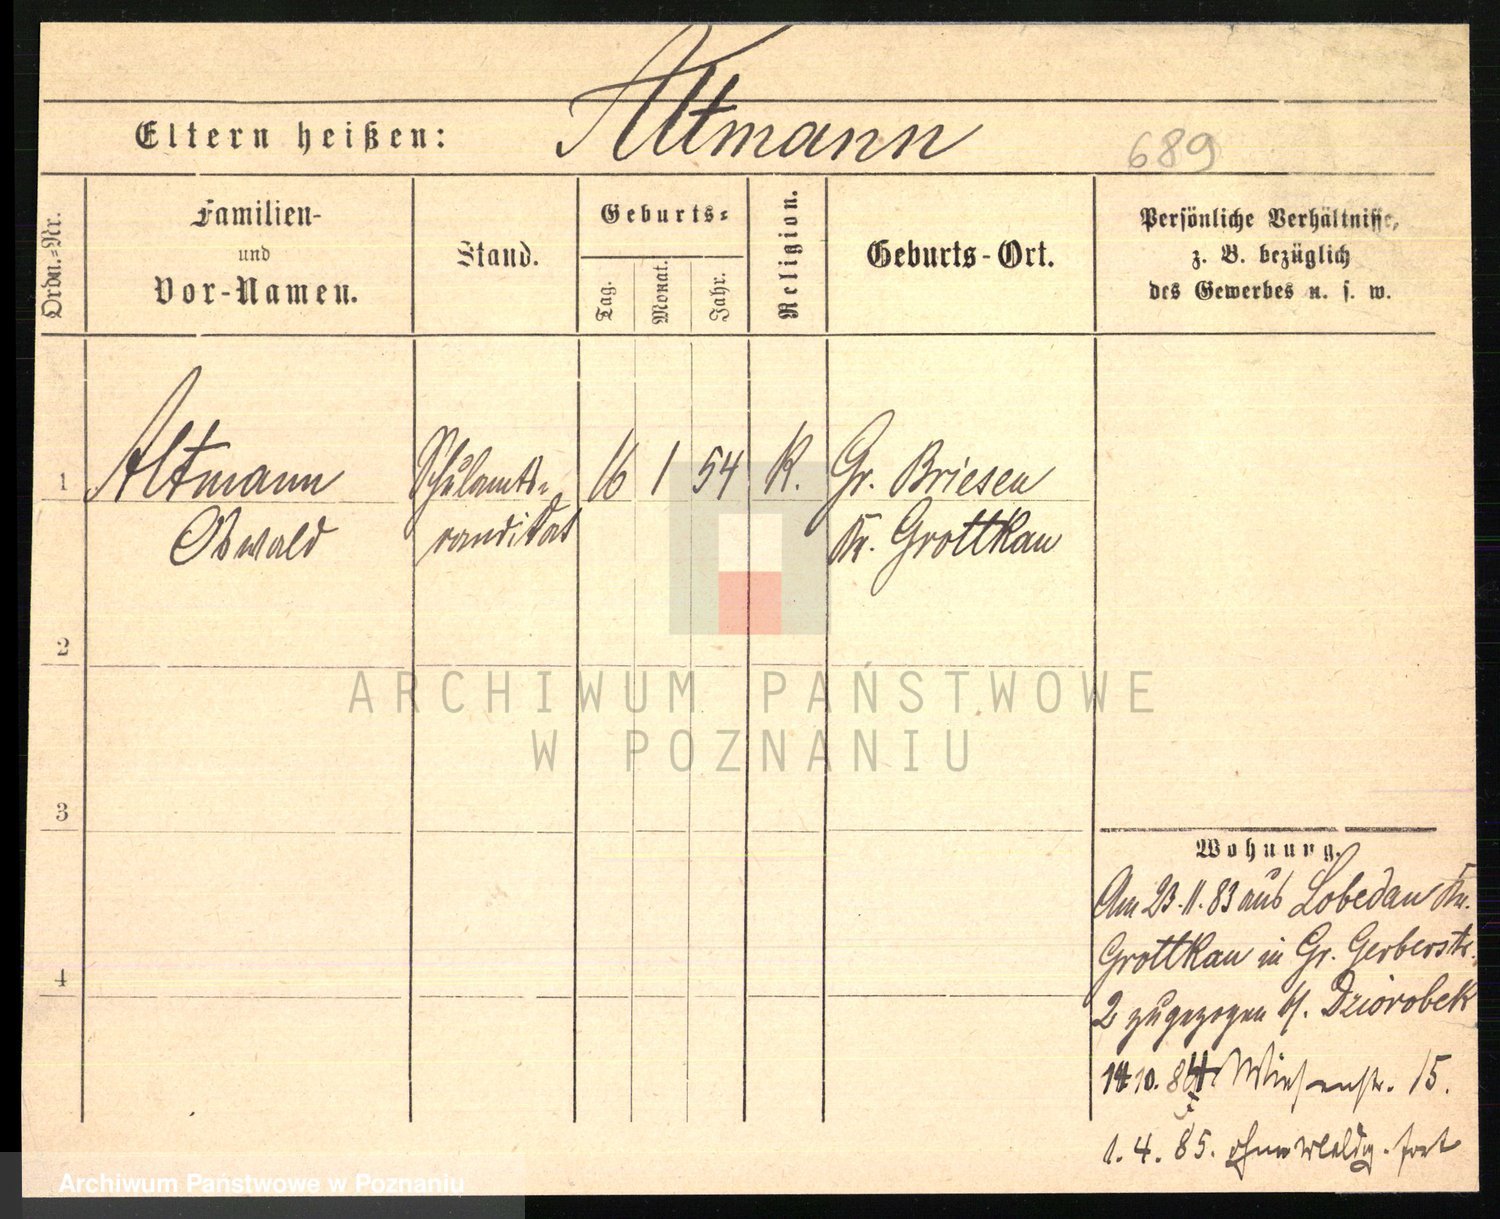 Altmann
Eltern heißen:
689
Ordn.=Nr.
Familien-
und
Vor-Namen.
Stand.
Geburts=
Tag.
Monat.
Jahr.
Religion.
Geburts-Ort.
Persönliche Verhältnisse,
z. B. bezüglich
des Gewerbes u. s. w.
1 Altmann Schulamts= 16 1 54 K. Gr. Briesen
Oswald candidat Kr. Grottkau
2
3
4
Wohnung.
Am 23.11.83 aus Lobedau Kr.
Grottkau in Gr. Gerberstr.
2 zugezogen b/. Dziorobek
14 10. 84 Wiesenstr. 15.
1. 4. 85. ohne Meldg. fort
ARCHIWUM PAŃSTWOWE
W POZNANIU
Archiwum Państwowe w Poznaniu